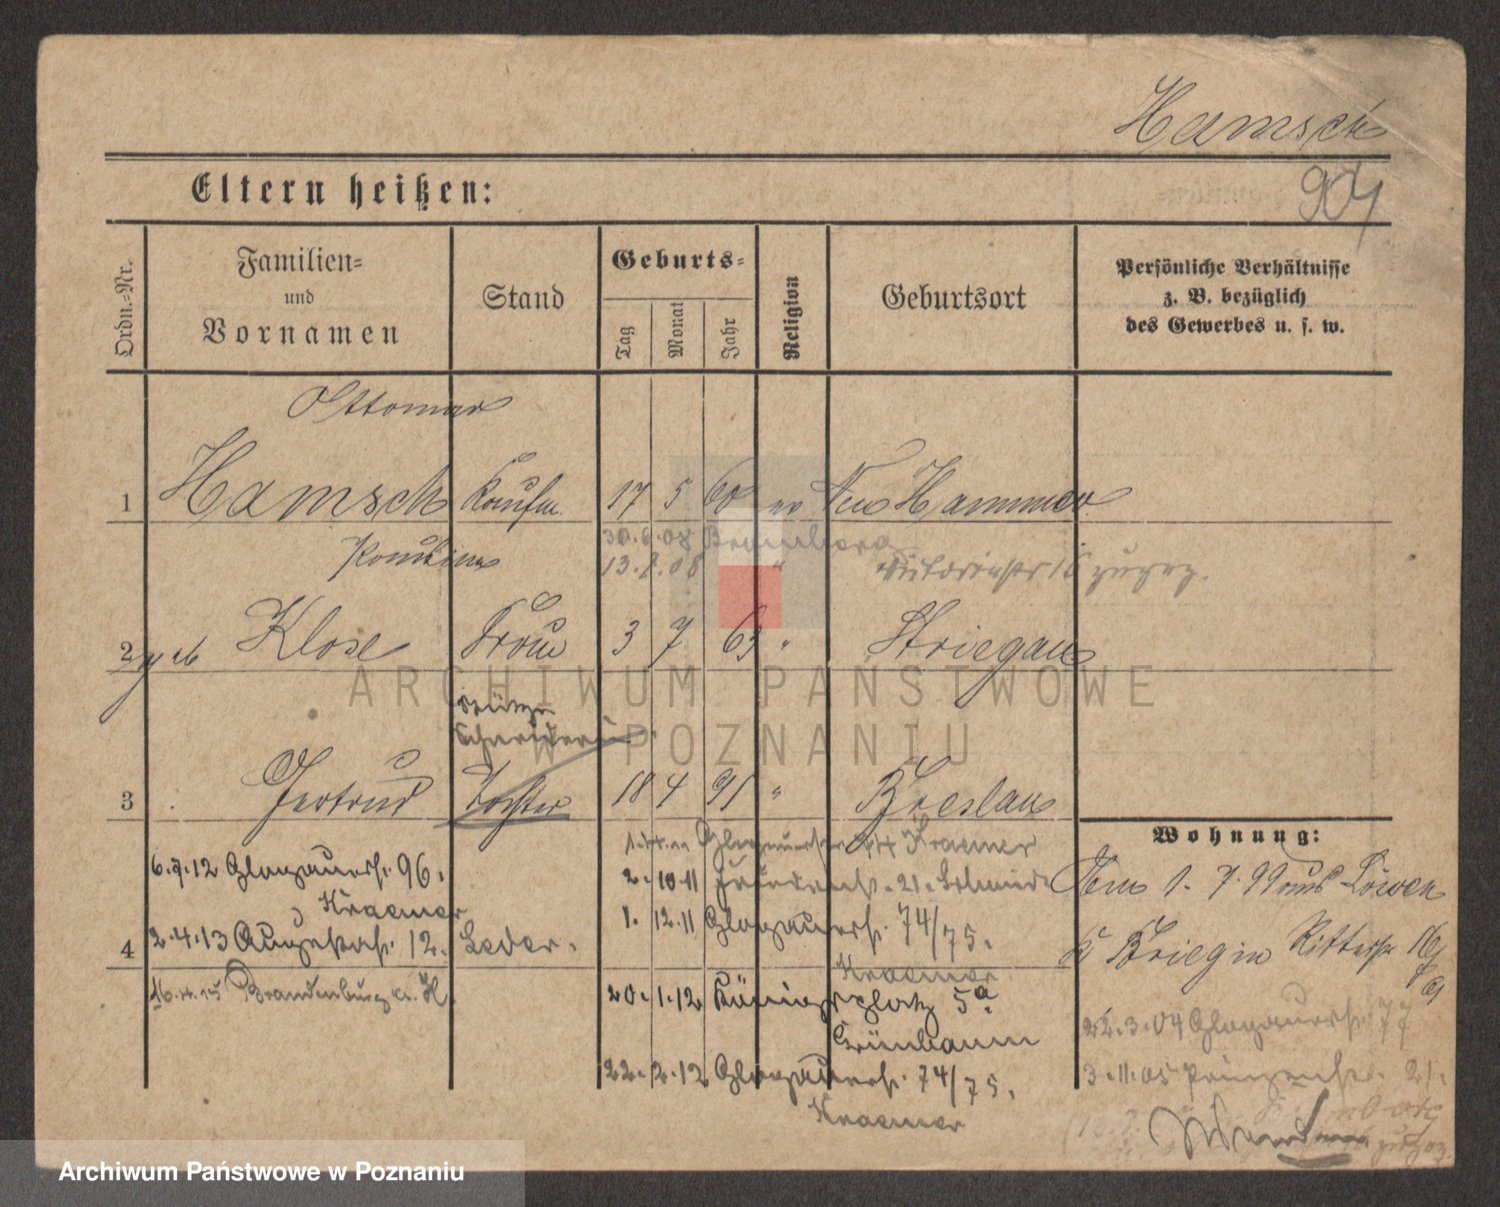 Hamsch
904
Eltern heißen:
Ordn.-Nr.
Familien-
und
Vornamen
Stand
Geburts-
Tag
Monat
Jahr
Religion
Geburtsort
Persönliche Verhältnisse
z. B. bezüglich
des Gewerbes u. s. w.
Ottomar
1 Hamsch Kaufm. 17 5 60 ev Neu Hammer
30.6.08 Bromberg
13.7.08 " 
2 geb Klose Frau 3 7 63 " Striegau
Stütze
Schneiderin
3 Gertrud Tochter 18 4 91 " Breslau
Wohnung:
Glogauerstr 74 Kraemer
6.7.12 Glogauerstr. 96.
Kraemer
2.10.11 21.
1.12.11 Glogauerstr. 74/75.
Kraemer
2.4.13 Augustastr. 12.
4 Leder.
16.4.15 Brandenburg a. H.
20.1.12 Königsplatz 5a
Grünbaum
22.2.12 Glogauerstr. 74/75.
Kraemer
1.7.99 aus Löwen
Brieg in Ritterstr 16
22.3.04 Glogauerstr. 77
3.11.05 Prinzenstr. 21.
ARCHIWUM PAŃSTWOWE
W POZNANIU
Archiwum Państwowe w Poznaniu